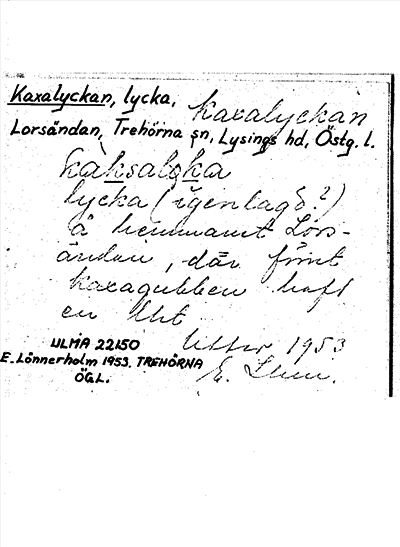 Kaxalyckan, lycka,
Kaxalyckan
Lorsändan, Trehörna sn, Lysings hd, Östg. l.
kàksalyka
lycka (igenlagd?)
å hemmanet Lors-
ändan, där förut
Kaxagubben haft
en
ULMA 22150
E. Lönnerholm 1953. TREHÖRNA
ÖGL.
1953
E. Lhm.